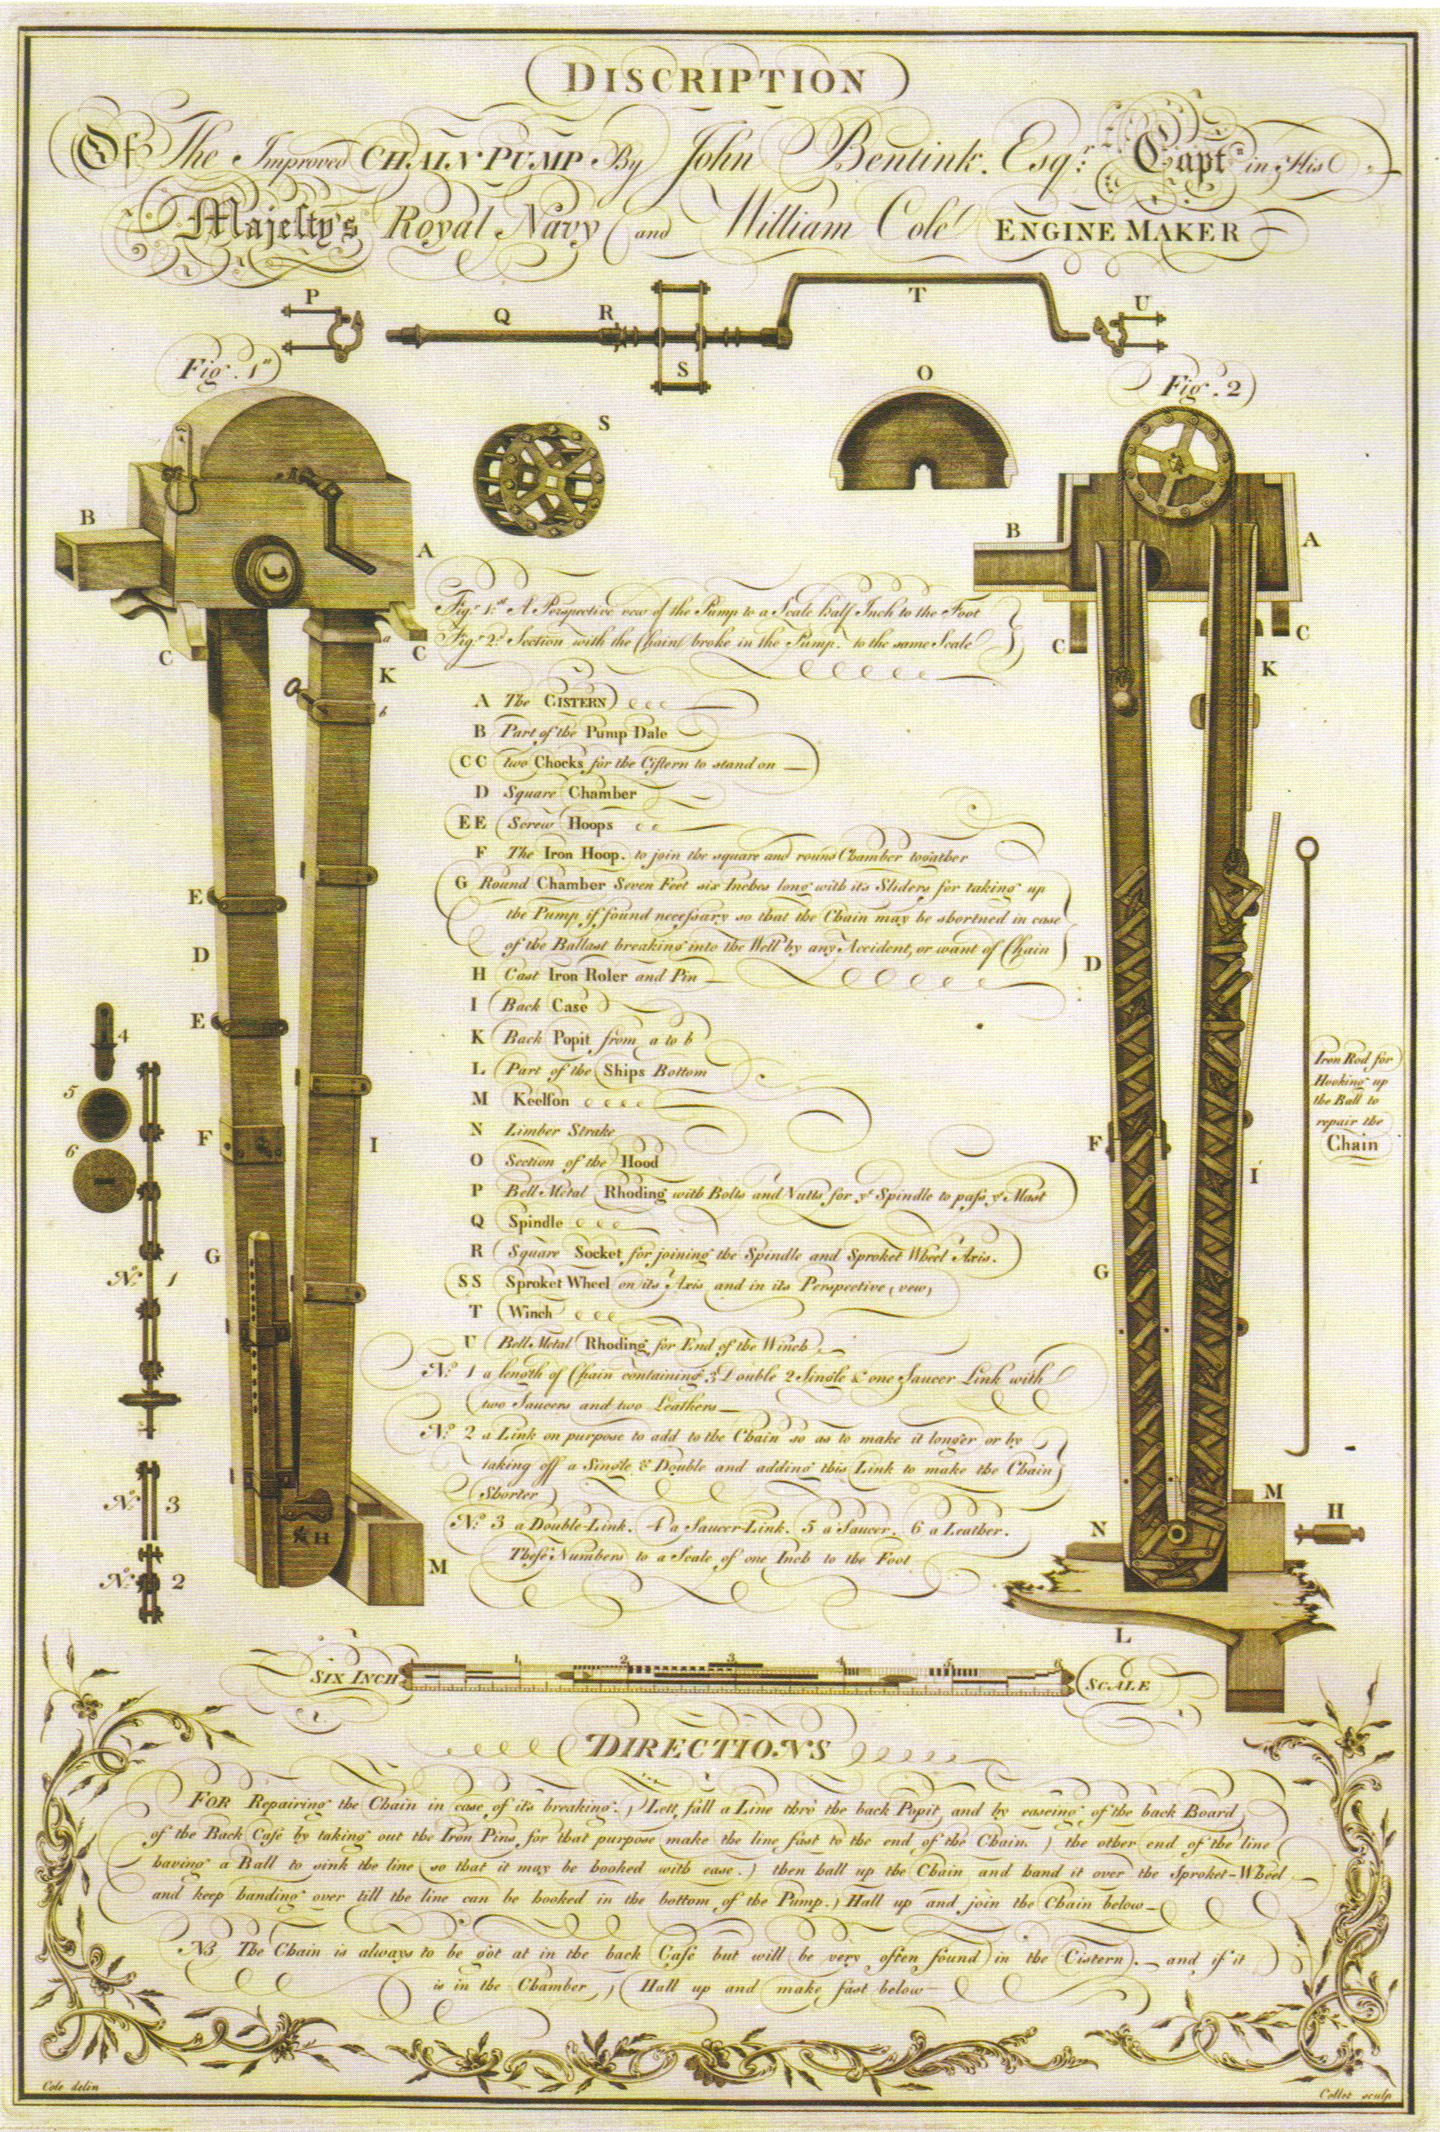 DISCRIPTION
Of The Improved CHAIN PUMP By John Bentink. Esqr: Captn in His
Majesty's Royal Navy and William Cole ENGINE MAKER
P
Q
R
S
T
U
Fig. 1st
Fig. 2
S
O
B
A
C
C
a
K
b
B
A
C
C
K
Figr 1:st A Perspective vew of the Pump to a Scale half Inch to the Foot
Figr 2d Section with the Chain broke in the Pump. to the same Scale
A The CISTERN
B Part of the Pump Dale
CC two Chocks for the Cistern to stand on
D Square Chamber
EE Screw Hoops
F The Iron Hoop. to join the square and round Chamber togather
G Round Chamber Seven Feet six Inches long with its Sliders for taking up
the Pump if found necessary so that the Chain may be shortned in case
of the Ballast breaking into the Well by any Accident, or want of Chain
H Cast Iron Roler and Pin
I Back Case
K Back Popit from a to b
L Part of the Ships Bottom
M Keelson
N Limber Strake
O Section of the Hood
P Bell-Metal Rhoding with Bolts and Nutts for ye Spindle to pass ye Mast
Q Spindle
R Square Socket for joining the Spindle and Sproket Wheel Axis.
SS Sproket Wheel on its Axis and in its Perspective vew
T Winch
U Bell-Metal Rhoding for End of the Winch
No: 1 a length of Chain containing 3 Double 2 Single & one Saucer Link with
two Saucers and two Leathers
No: 2 a Link on purpose to add to the Chain so as to make it longer or by
taking off a Single & Double and adding this Link to make the Chain
Shorter
No: 3 a Double-Link. 4 a Saucer-Link. 5 a Saucer. 6 a Leather.
These Numbers to a Scale of one Inch to the Foot
E
D
E
F
G
I
H
M
4
5
6
No: 1
No: 3
No: 2
D
F
G
I
N
M
H
L
Iron Rod for
Hooking up
the Ball to
repair the
Chain
SIX INCH
1 2 3 4 5 6
SCALE
DIRECTIONS
FOR Repairing the Chain in case of its breaking. Lett fall a Line thro the back Popit, and by easeing of the back Board
of the Back Case by taking out the Iron Pins, for that purpose make the line fast to the end of the Chain. the other end of the line
having a Ball to sink the line so that it may be hooked with ease. then hall up the Chain and hand it over the Sproket-Wheel
and keep handing over till the line can be hooked in the bottom of the Pump. Hall up and join the Chain below
NB The Chain is always to be got at in the back Case but will be very often found in the Cistern. and if it
is in the Chamber Hall up and make fast below
Cole delin
Collet sculp